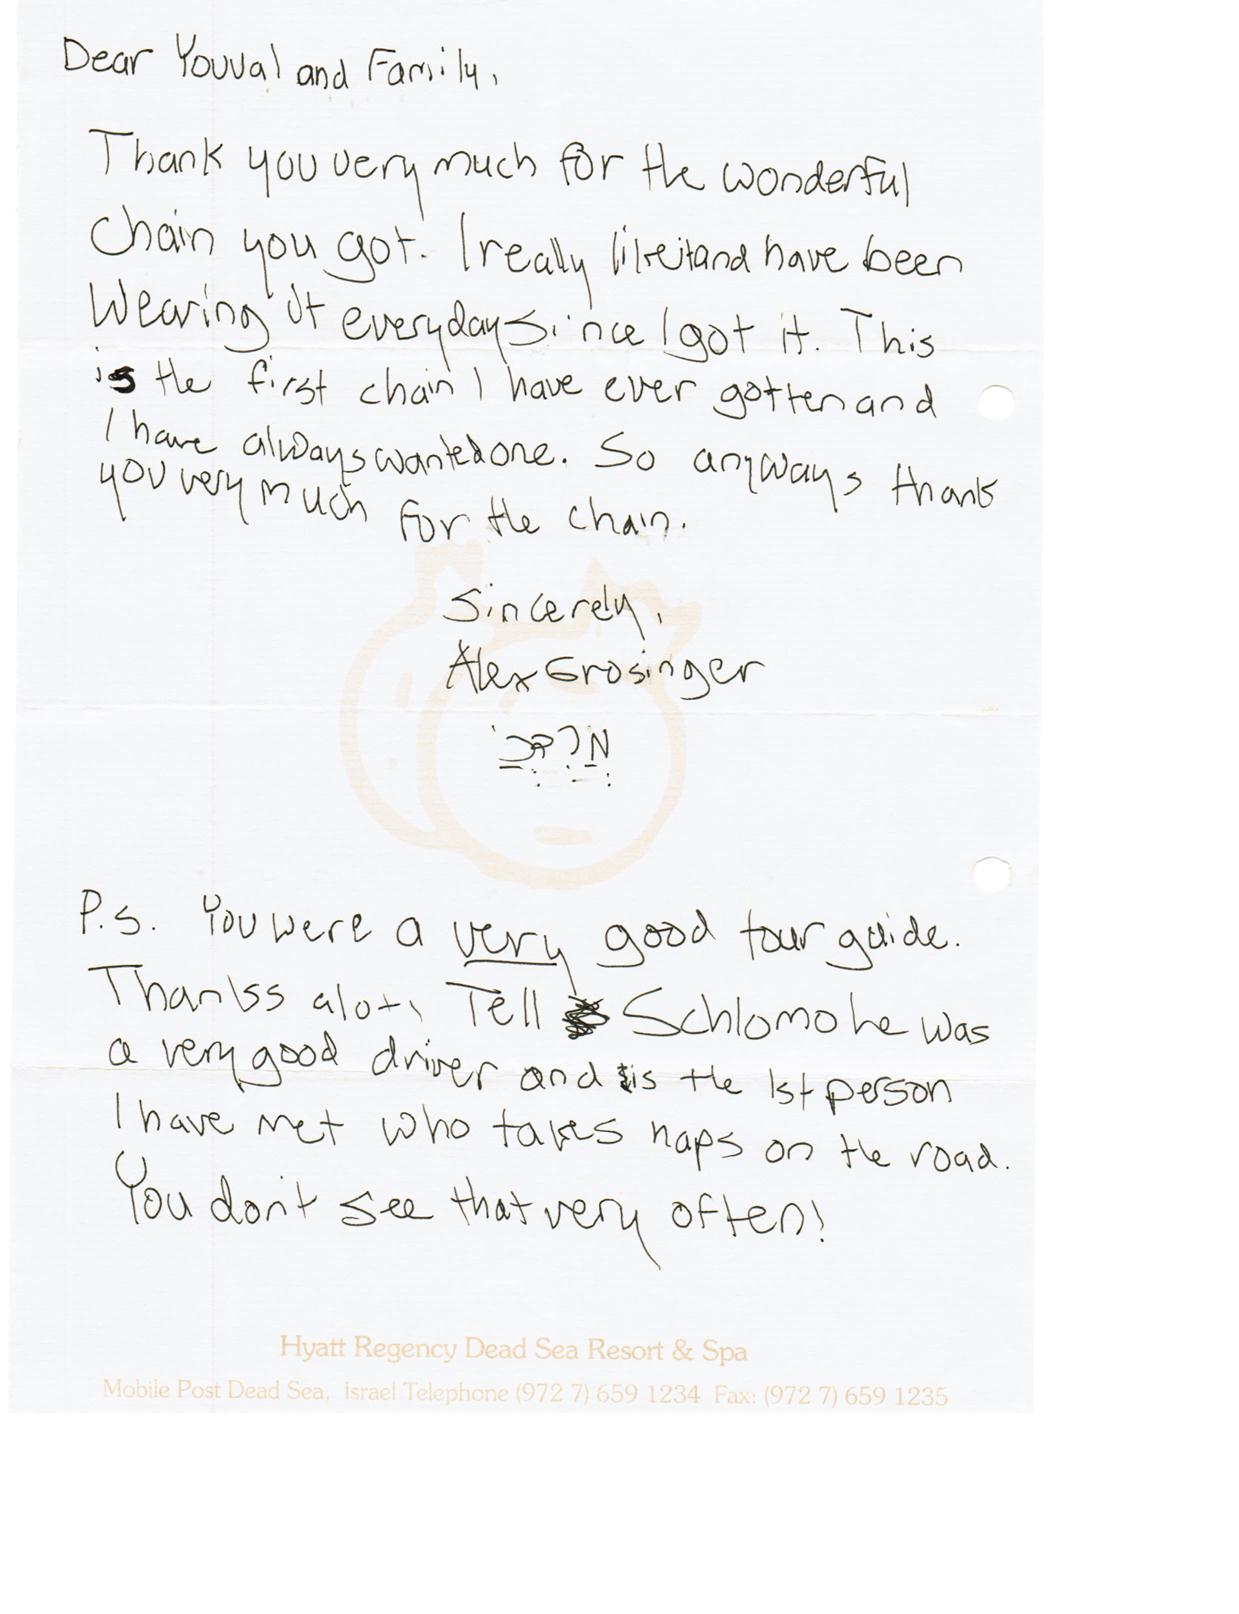 Dear Youval and Family,
Thank you very much for the wonderful
chain you got. I really like it and have been
Wearing it everyday since I got it. This
is the first chain I have ever gotten and
I have always wanted one. So anyways thank
you very much for the chain.
Sincerely,
Alex Grosinger
P.S. You were a very good tour guide.
Thankss alot, Tell Schlomo he was
a very good driver and is the 1st person
I have met who takes naps on the road.
You don't see that very often!
Hyatt Regency Dead Sea Resort & Spa
Mobile Post Dead Sea, Israel Telephone (972 7) 659 1234 Fax: (972 7) 659 1235